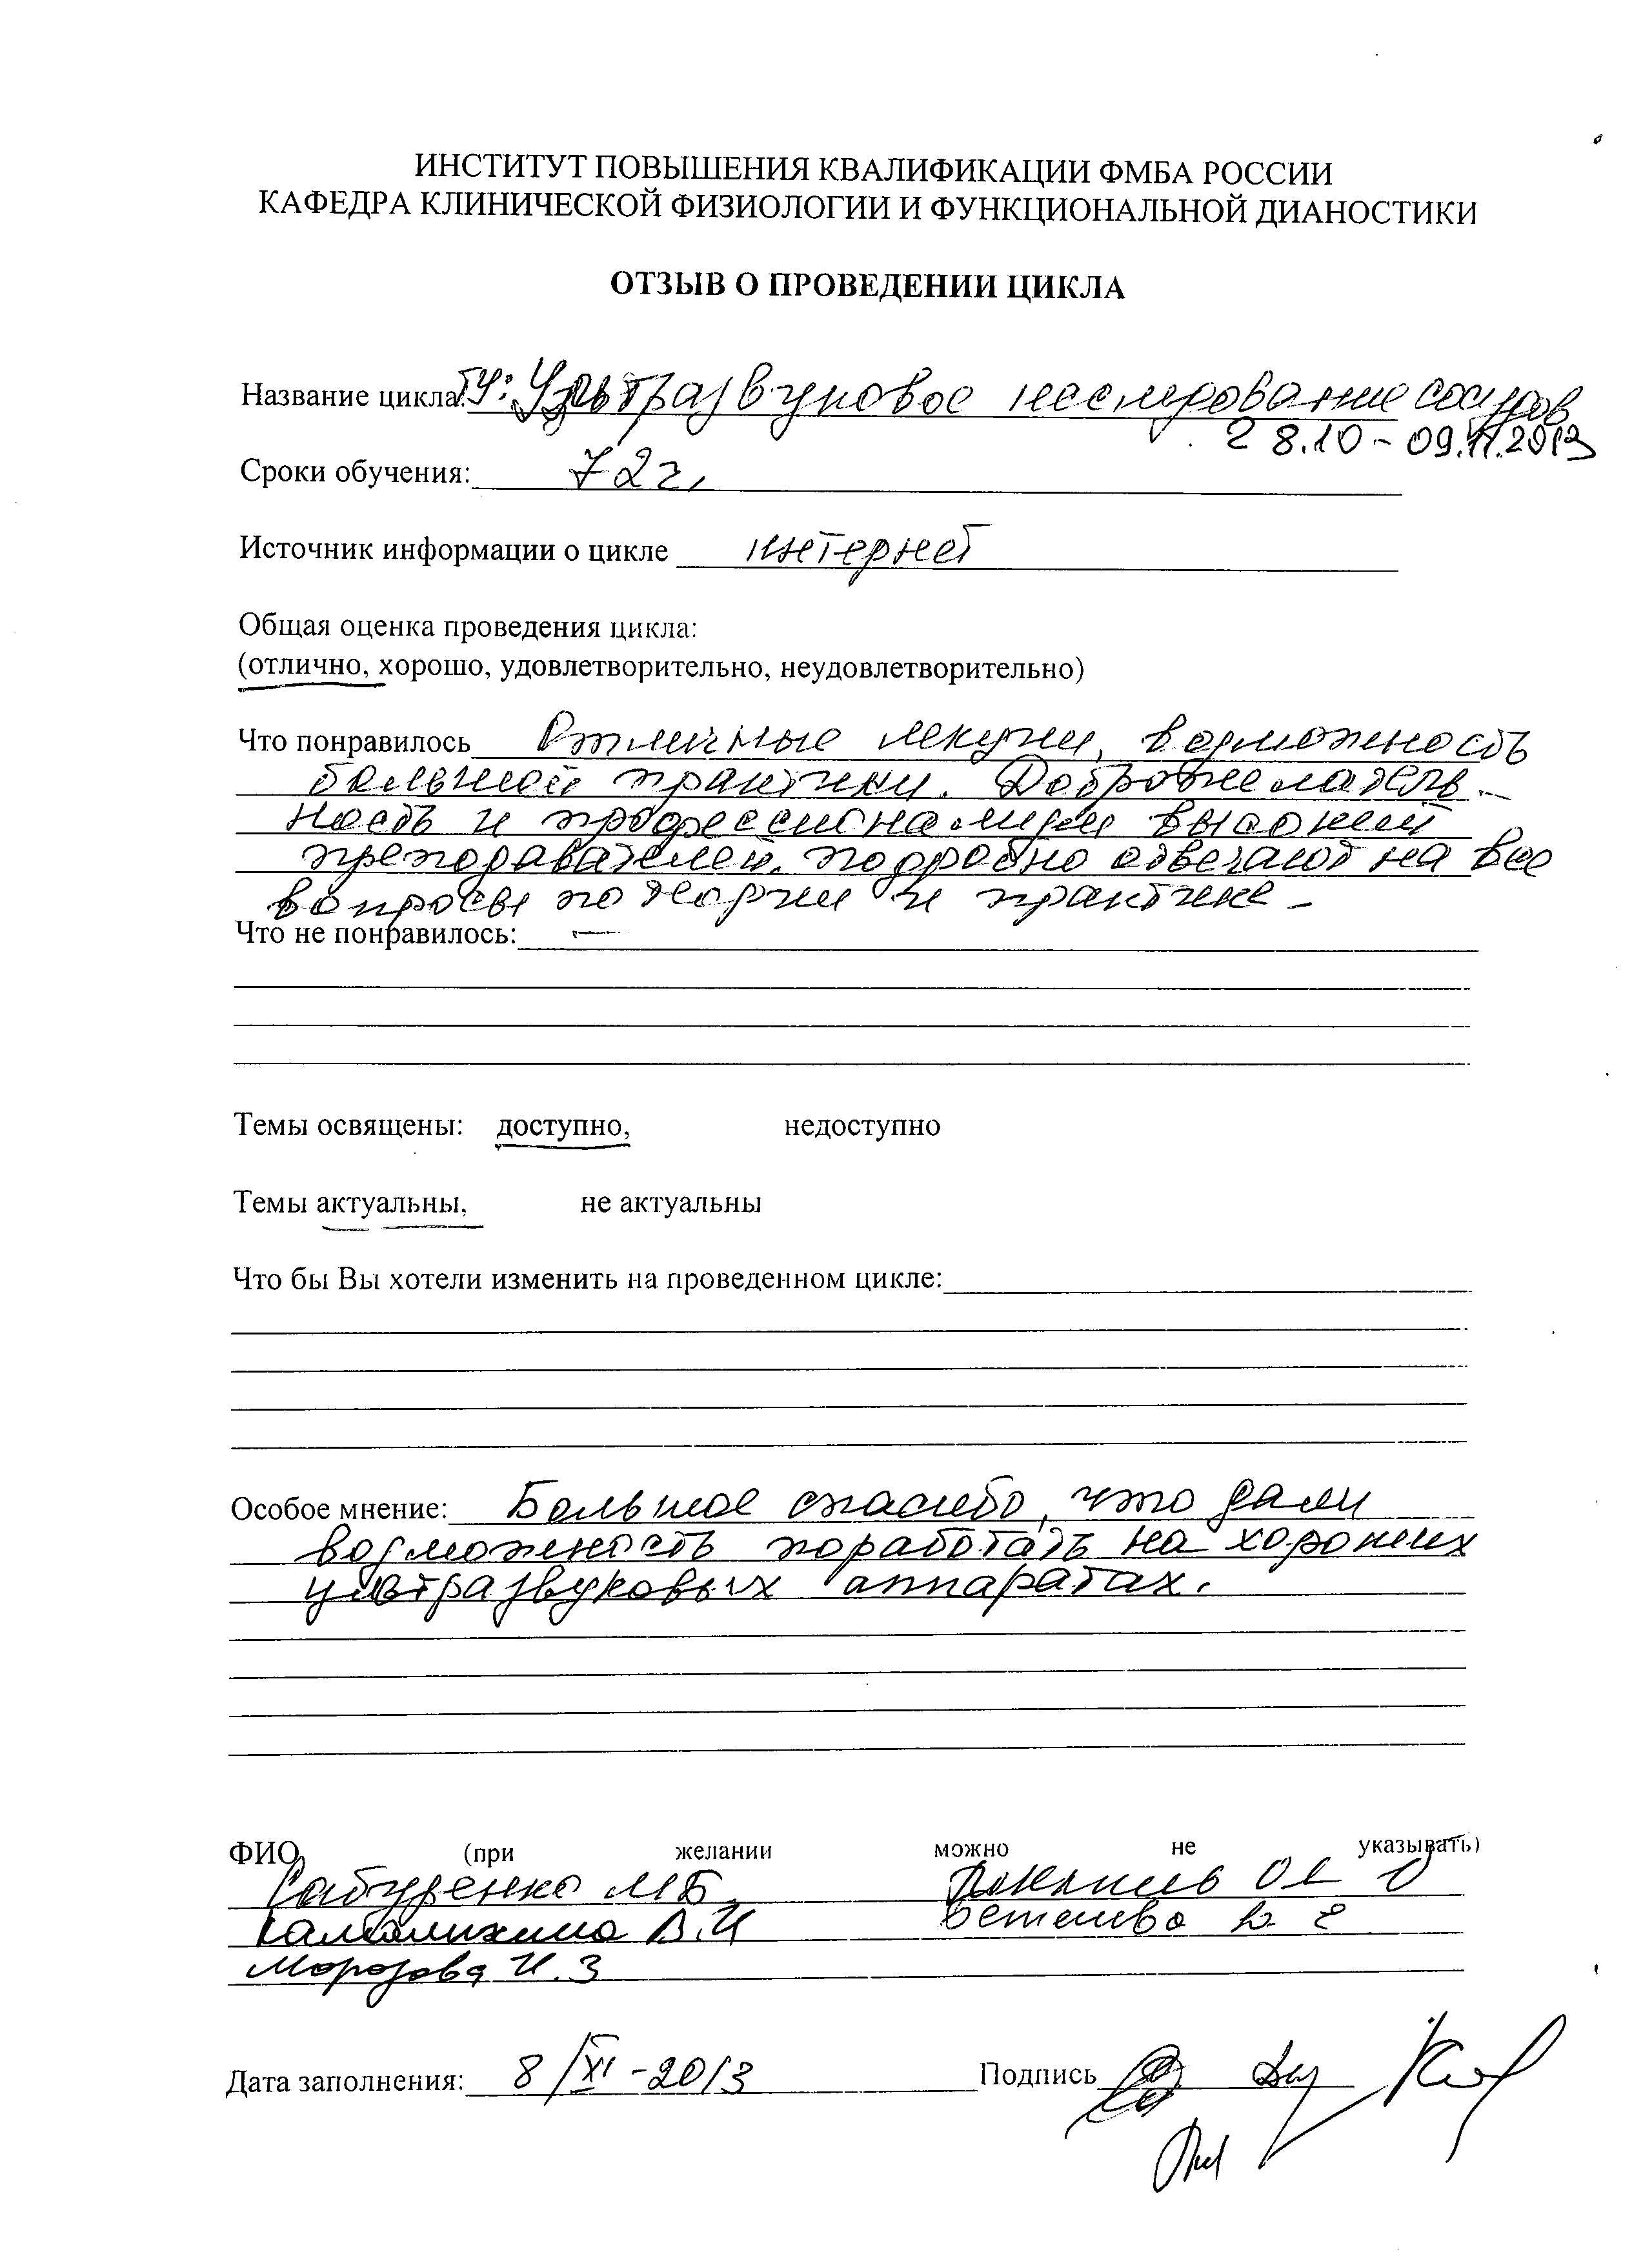 ИНСТИТУТ ПОВЫШЕНИЯ КВАЛИФИКАЦИИ ФМБА РОССИИ
КАФЕДРА КЛИНИЧЕСКОЙ ФИЗИОЛОГИИ И ФУНКЦИОНАЛЬНОЙ ДИАНОСТИКИ
ОТЗЫВ О ПРОВЕДЕНИИ ЦИКЛА
Название цикла: ТУ: Ультразвуковое исследование сосудов
28.10 - 09.11.2013
Сроки обучения: 72 ч.
Источник информации о цикле интернет
Общая оценка проведения цикла:
(отлично, хорошо, удовлетворительно, неудовлетворительно)
Что понравилось Отличные лекции, возможность
большой практики. Доброжелатель-
ность и профессионализм высокий
преподавателей. подробно отвечают на все
вопросы по теории и практике -
Что не понравилось: —
Темы освящены: доступно, недоступно
Темы актуальны, не актуальны
Что бы Вы хотели изменить на проведенном цикле:
Особое мнение: Большое спасибо, что дали
возможность поработать на хороших
ультразвуковых аппаратах.
ФИО (при желании можно не указывать)
М.Б.
В.И
Морозова И.З
Дата заполнения: 8/XI-2013 Подпись